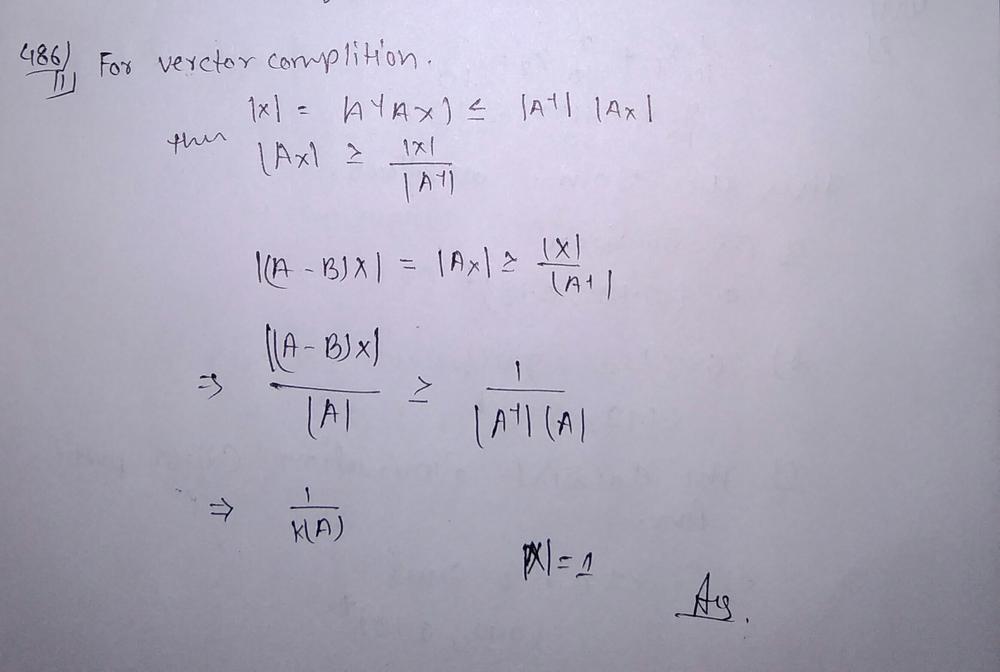 486) For verctor complition.
11)
|x| = |A⁻¹Ax| ≤ |A⁻¹| |Ax|
then |Ax| ≥ |x| / |A⁻¹|
|(A - B)x| = |Ax| ≥ |x| / |A⁻¹|
⇒ |(A - B)x| / |A| ≥ 1 / |A⁻¹| |A|
⇒ 1 / K(A)
|x| = 1